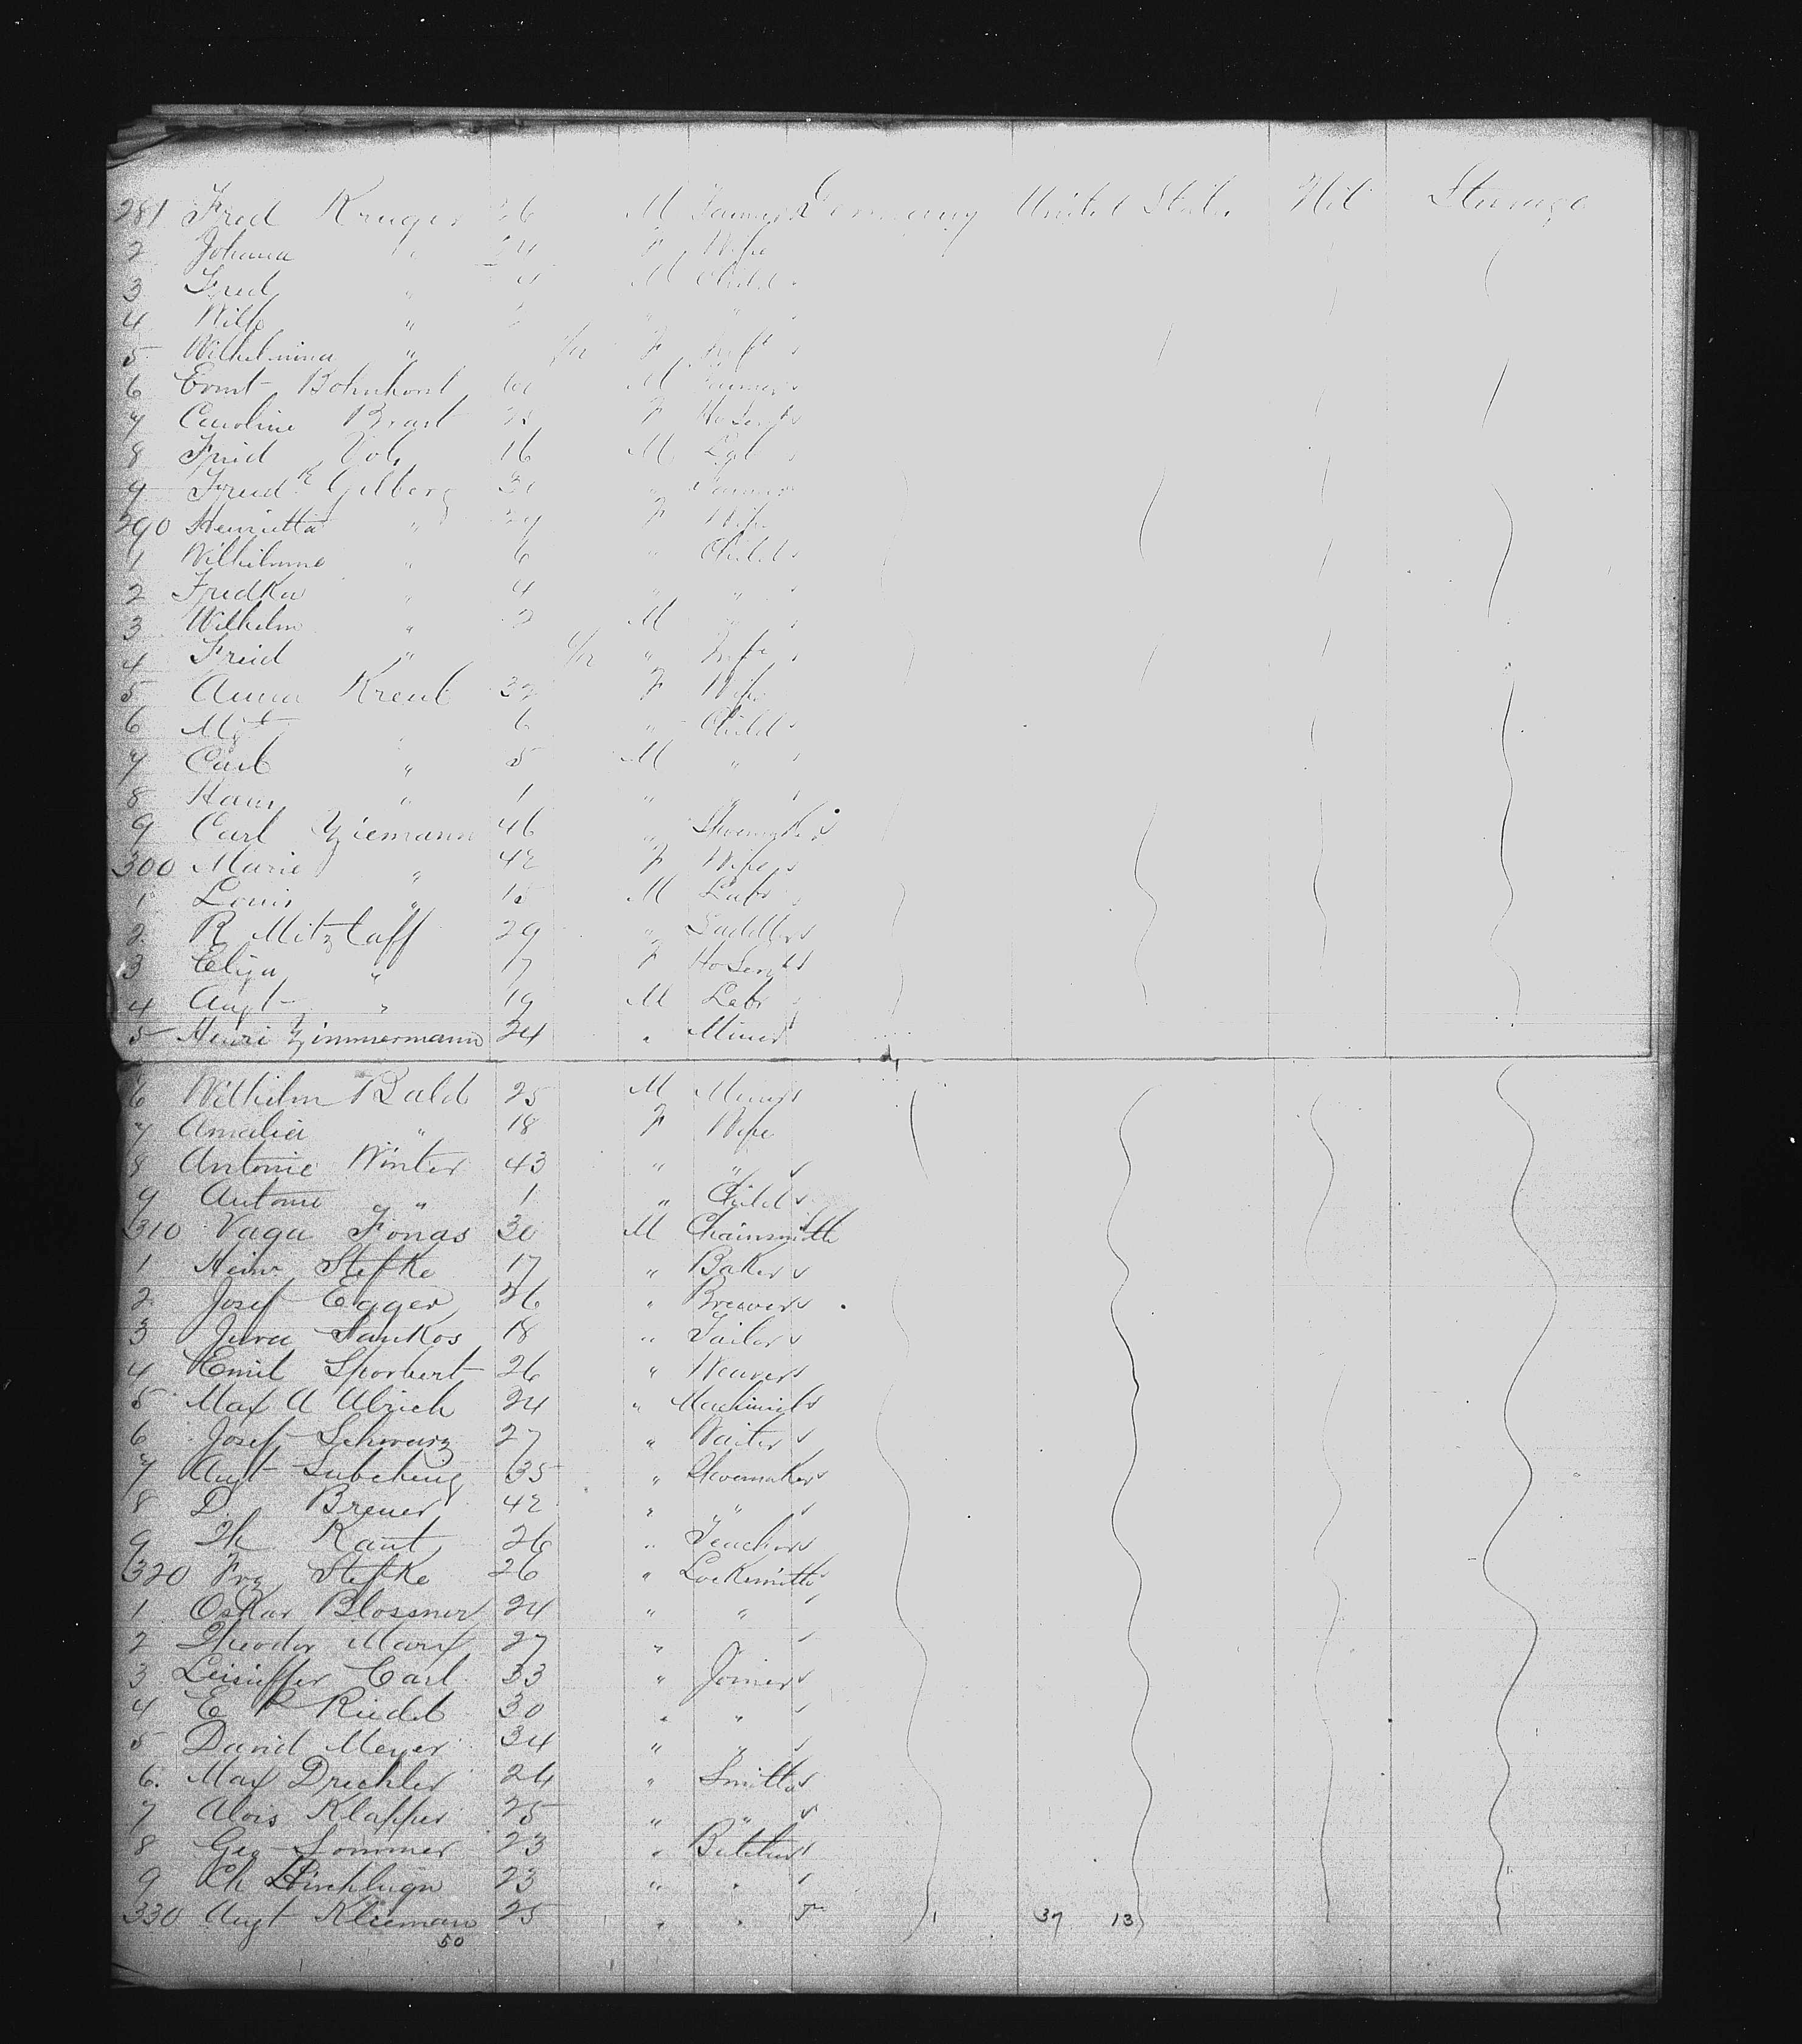 281 Fred Kruger 26 M Farmer Germany United States Nil Steerage
2 Johana " 24 F Wife
3 Fred " 4 M Child
4 Wilh " " "
5 Wilhelmina " /12 F Inft
6 Ernst Bohnhorst M Farmer
7 Caroline Brast F Ho Servt
8 Fried 16 M Lab
9 Friedk Gelberg " Farmer
290 Henrietta " F Wife
1 Wilhelmine " 6 " Child
2 Fredka " 4 " "
3 Wilhelm " M "
4 Fried " /12 " Inft
5 Anna 32 F Wife
6 Mgt " 6 " Child
7 Carl " 5 M "
8 Hans " 1 " "
9 Carl Ziemann 46 " Shoemaker
300 Marie " 42 F Wife
1 Louis " 15 M Labr
2 R Mitzlaff 29 " Saddler
3 Eliza " 17 F Ho Servt
4 Augt " 19 M Labr
5 Henri Zimmermann 24 " Miner
6 Wilhelm Bald 25 M Miner
7 Amalia " 18 F Wife
8 Antonie Winter 43 " "
9 Antonie " 1 " Child
310 Vaga Jonas 30 M Chainsmith
1 Heinr Stefke 17 " Baker
2 Josef Egger 26 " Brewer
3 Jura Stankos 18 " Tailor
4 Emil Sporbert 26 " Weaver
5 Max A Ulrich 24 " Machinist
6 Josef Schwarz 27 " Waiter
7 Augt 35 " Shoemaker
8 D. Breuer 42 " "
9 Th Kant 26 " Teacher
320 Frz Stefke 26 " Locksmith
1 Oskar Blossner 24 " "
2 Theodor Marx 27 "
3 Carl 33 " Joiner
4 E P Riedel 30 " "
5 David Meyer 34 " "
6. Max Drechler 24 " Smith
7 Alois Klapper 25 " "
8 Geo Sommer 23 " Butcher
9 Ch 23 " "
330 Augt Klieman 25 " " 1 37 13
50